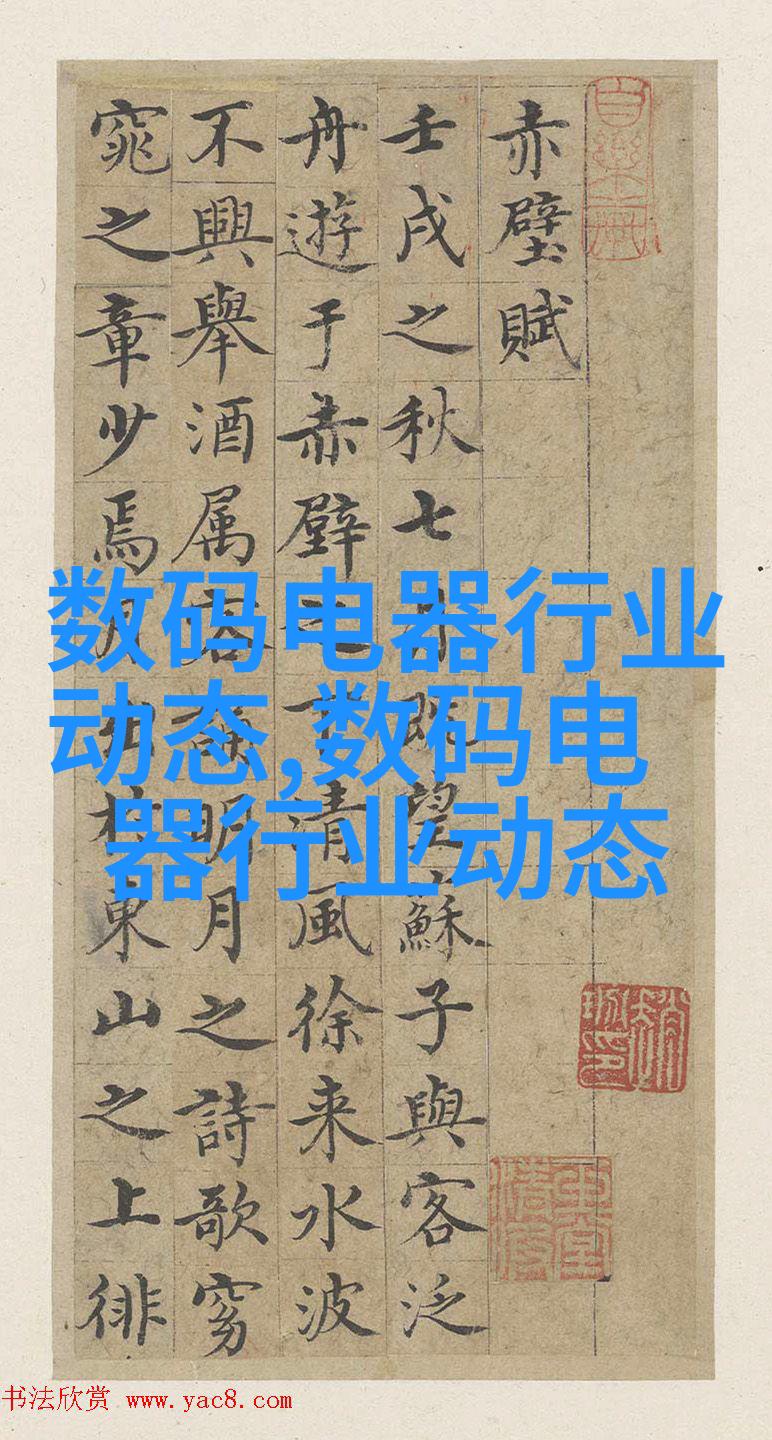 赤壁賦
壬戌之秋七月既望蘇子與客泛
舟遊于赤壁之下清風徐来水波
不興舉酒属客誦明月之詩歌窈
窕之章少焉月出於東山之上徘
数码电器行业
动态,数码电
器行业动态
书法欣赏 www.yac8.com